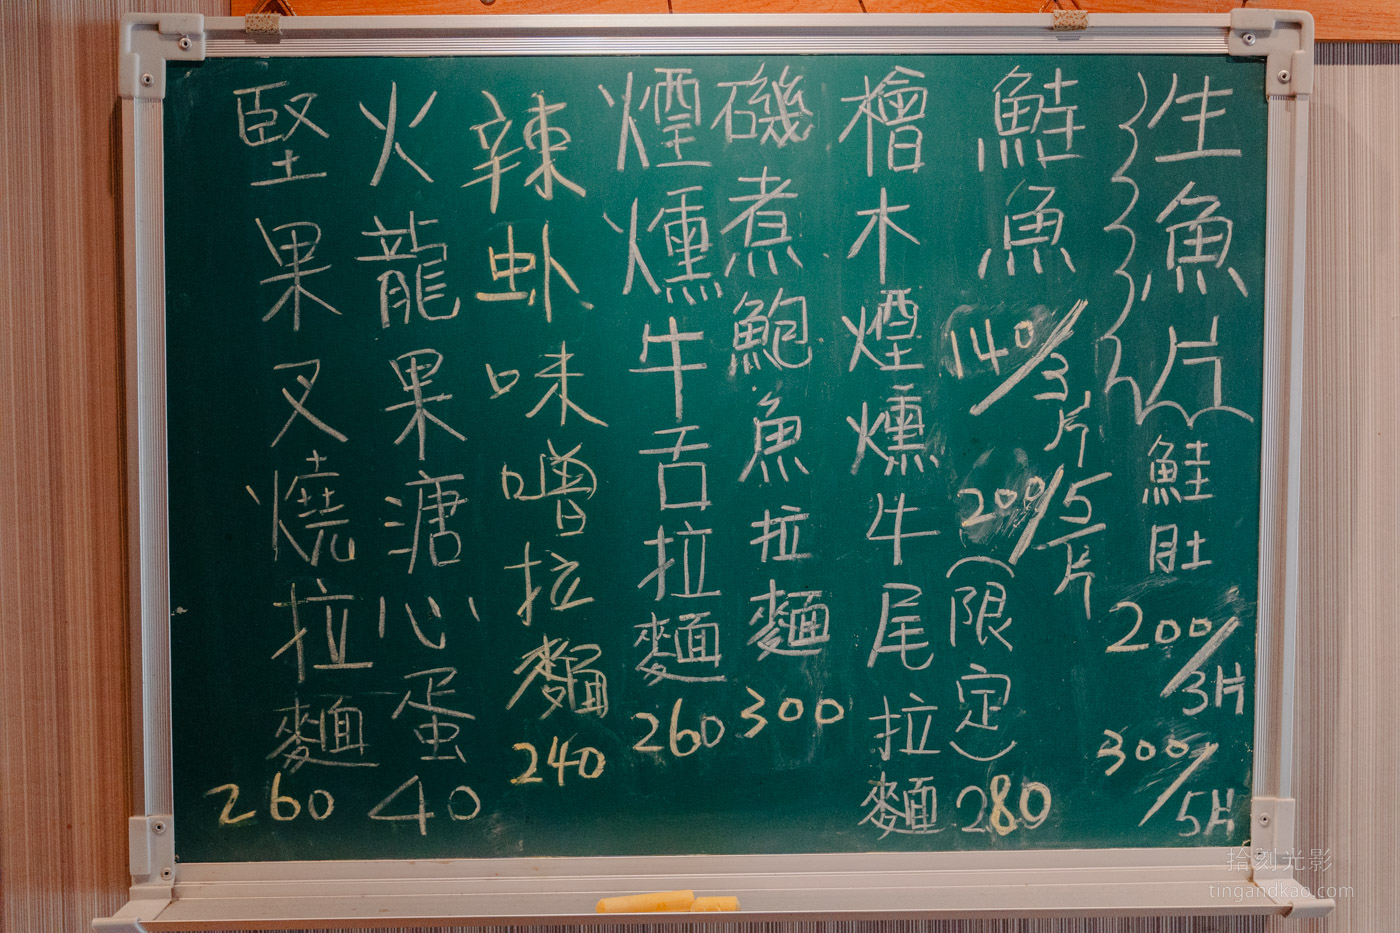 生魚片鮭肚200/3片
300/5片
鮭魚140/3片
200/5片
檜木煙燻牛尾拉麵(限定)280
磯煮鮑魚拉麵300
煙燻牛舌拉麵260
辣虾味噌拉麵240
火龍果溏心蛋40
堅果叉燒拉麵260
拾刻光影
tingandkao.com